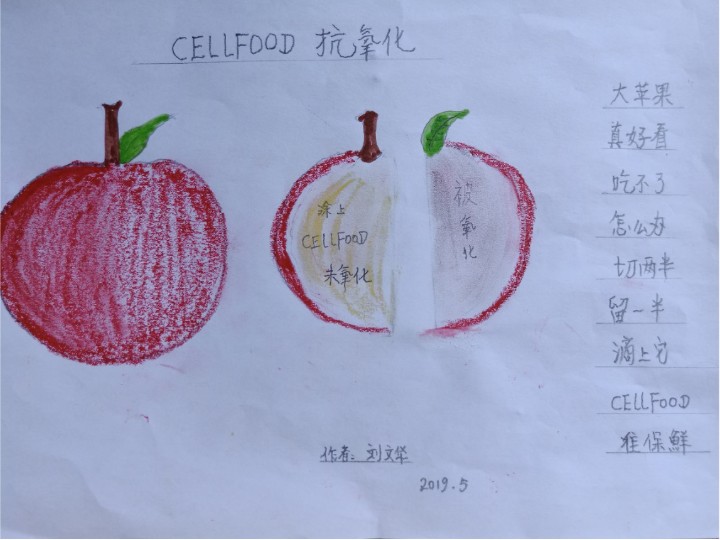 CELLFOOD 抗氧化
涂上
CELLFOOD
未氧化
被
氧
化
大苹果
真好看
吃不了
怎么办
切两半
留一半
滴上它
CELLFOOD
准保鲜
作者：刘文华
2019.5